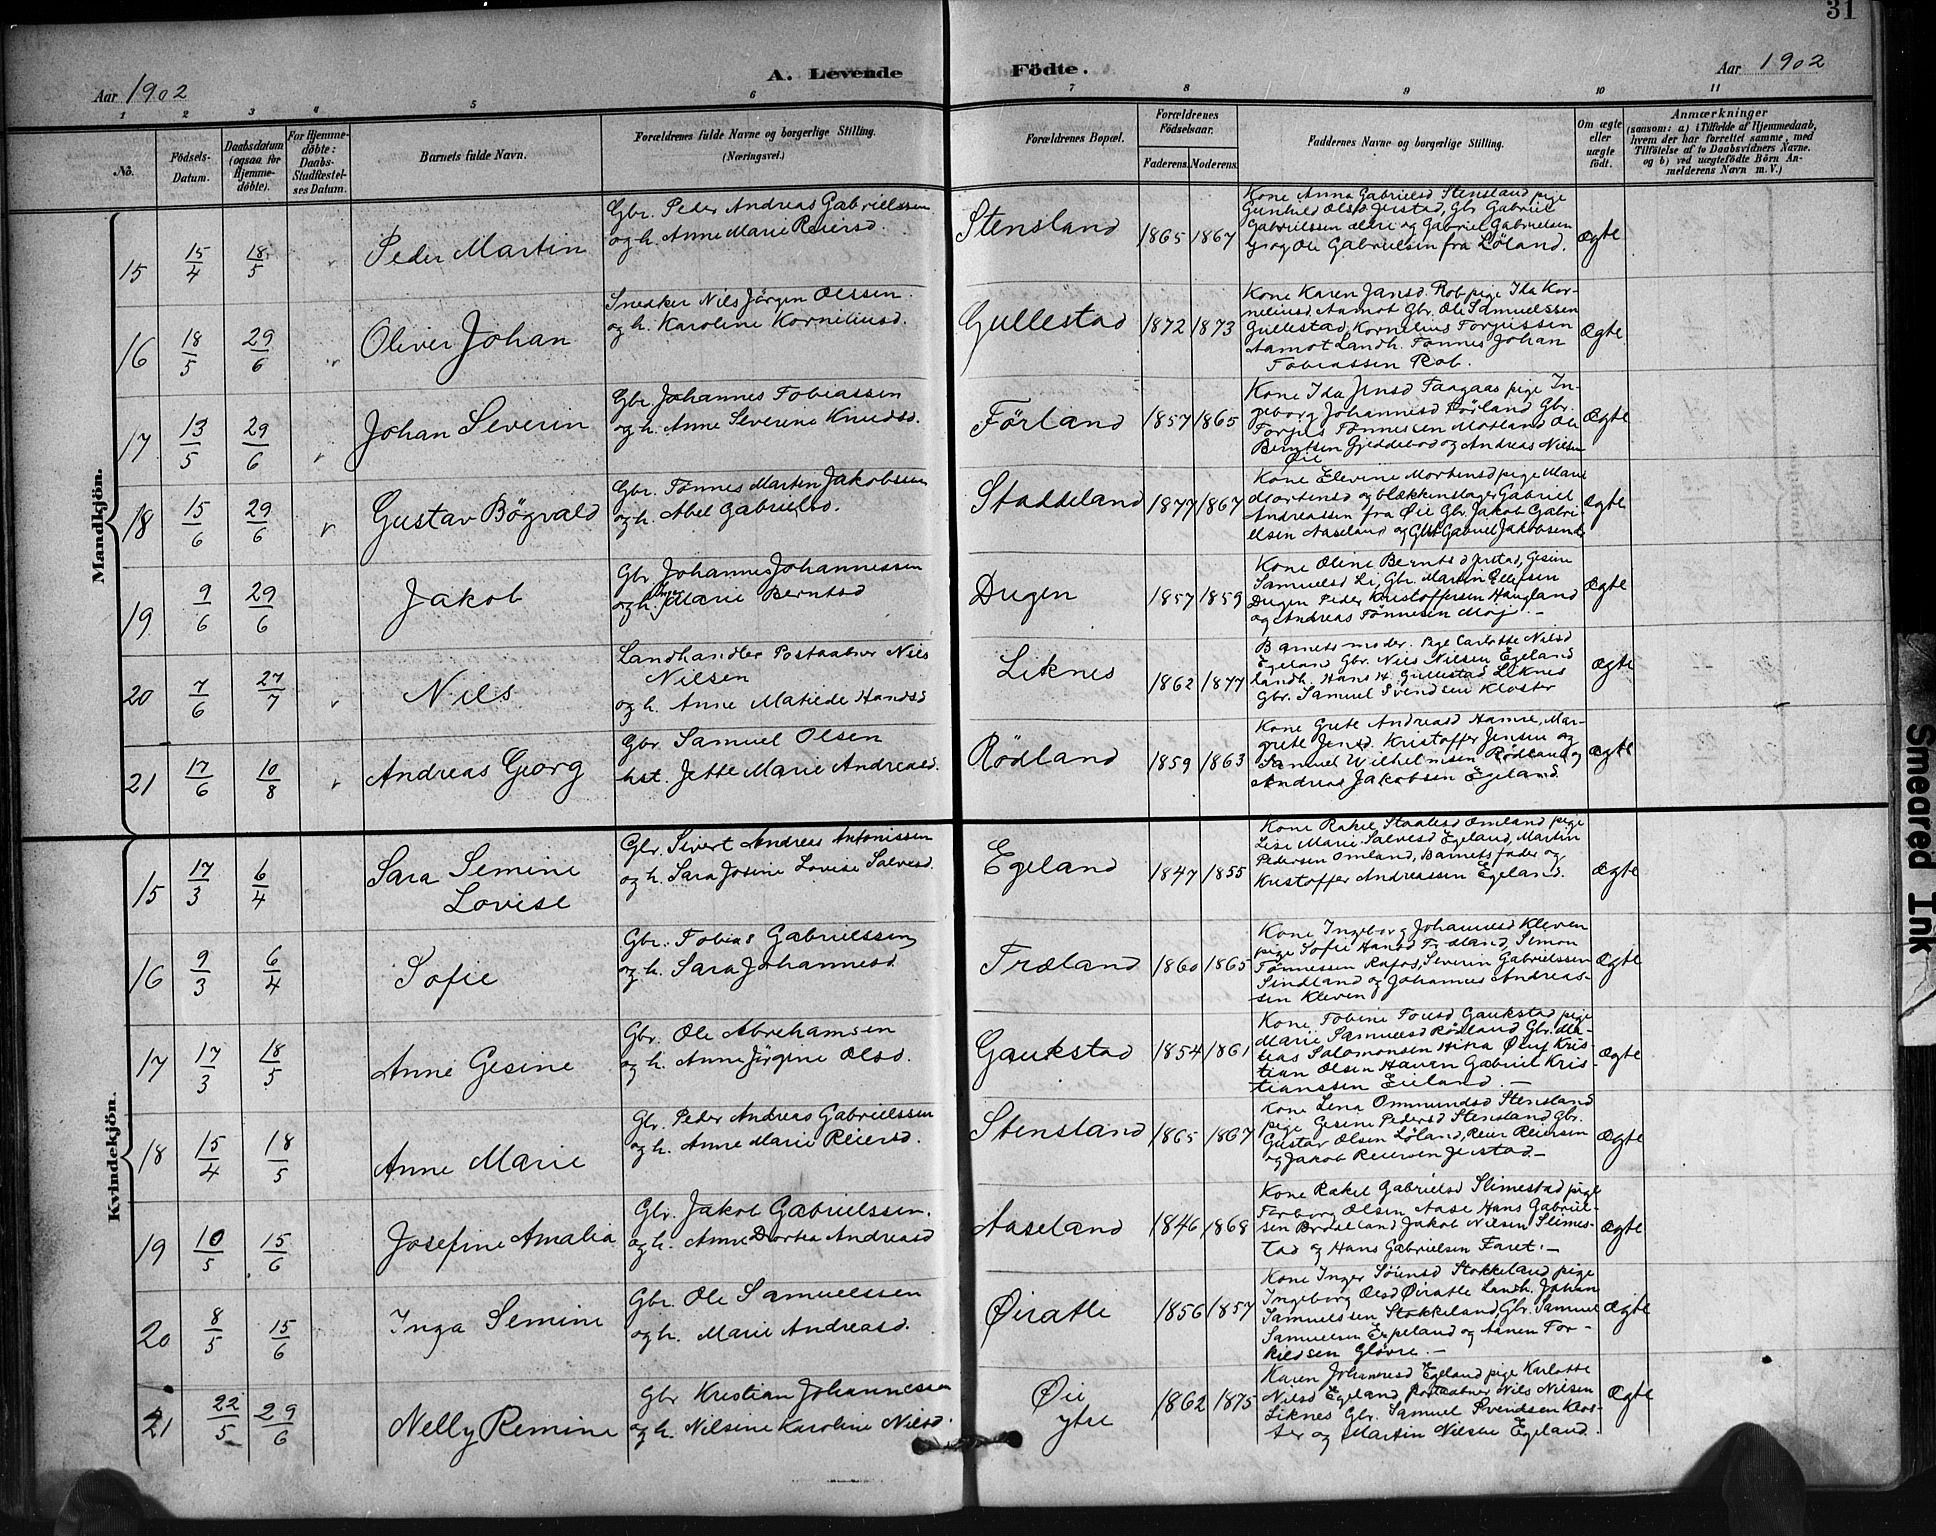 31
A. Levende Födte.
Aar 1902
Aar 1902
1 2 3 4 5 6 7 8 9 10 11
No.
Födsels-Datum.
Daabsdatum (ogsaa for Hjemme-döbte).
For Hjemme-döbte: Daabs-Stadfæstel-ses Datum.
Barnets fulde Navn.
Forældrenes fulde Navne og borgerlige Stilling.
(Næringsvei.)
Forældrenes Bopæl.
Forældrenes Födselsaar.
Faderens. Moderens.
Faddernes Navne og borgerlige Stilling.
Om ægte eller uægte født.
Anmærkninger
(saasom: a) i Tilfælde af Hjemmedaab, hvem der har forrettet samme, med Tilföielse af to Daabsvidners Navne. og b) ved uægtefödte Börn An-melderens Navn m. V.)
Mandkjön.
15 15/4 18/5 Peder Martin
Gbr. Peder Andreas Gabrielssen
og h. Anne Marie Reiersd.
Stensland 1865 1867
Kone Anna Gabrielsd Stensland pige
Gunhild Olsd Jerstad, Gbr Gabriel
Gabrielssen ældre og Gabriel Gabrielsen
yr og Ole Gabrielsen fra Løland.
Ægte
16 18/5 29/6 Oliver Johan
Snedker Nils Jörgen Olssen.
og h. Karoline Korneliusd.
Gullestad 1872 1873
Kone Karen Jansd. Rob pige Ida Kor-
neliusd, Aamot Gbr. Ole Samuelssen
Gullestad, Kornelius Torgiissen
Aamot Landh. Tønnes Johan
Tobiassen Rob.
Ægte
17 13/5 29/6 Johan Severin
Gbr. Johannes Tobiassen
og h. Anne Severine Knudsd.
Förland 1857 1865
Kone Ida Jensd Faagaas pige In-
geborg Johannesd Förland Gbr.
Torgils Tønnessen Moeland Ole
Berntsen Gjeddebo og Andreas Nilsen
Øie
Ægte
18 15/6 29/6 Gustav Bögvald
Gbr. Tönnes Martin Jakobsen
og h. Abel Gabrielsd.
Stadseland 1877 1867
Kone Elevine Mortensd pige Marie
Mortensd og blækkenslager Gabriel
Andreassen fra Øie Gbr. Jakob Gabri-
elsen Aaseland og Gabriel Jakobsen
Ægte
19 9/6 29/6 Jakob
Gbr. Johannes Johannessen
og h. Inger Marie Berntsd
Dugen 1857 1859
Kone Oline Berntsd Jerstad, Gesine
Samuelsd Li, Gbr. Martin Ellefsen
Dugen Peder Kristoffersen Haugland
og Andreas Tønnesen Moj. -
Ægte
20 7/6 27/7 Nils
Landhandler Postaabner Nils
Nilsen
og h. Anne Matilde Hansd
Liknes 1862 1877
Barnets moder. Pige Carlotte Nilsd
Egeland Gbr. Nils Nilsen Egeland
landh. Hans H. Gullestad Liknes
Gbr. Samuel Svendsen Kloster
Ægte
21 17/6 10/8 Andreas Georg
Gbr. Samuel Olsen
hst. Jette Marie Andreasd.
Rödland 1859 1863
Kone Grete Andreasd Hamre, Mar-
grete Jensd. Kristoffer Jensen og
Samuel Wilhelmsen Rødland og
Andreas Jakobsen Egeland
Ægte
Kvindekjön.
15 17/3 6/4 Sara Semine
Lovise
Gbr. Sivert Andreas Antonissen
og h. Sara Josine Lovise Salvesd.
Egeland 1847 1855
Kone Rakel Staalesd Omland pige
Lise Marie Salvesd Egeland, Martin
Pedersen Omland, Barnets fader og
Kristoffer Andreassen Egeland.
Ægte
16 9/3 6/4 Sofie
Gbr. Tobias Gabrielssen
og h. Sara Johannesd.
Træland 1860 1865
Kone Ingeborg Johannesd Kleven
pige Sofie Hansd Trædland, Simon
Tønnessen Rafos, Severin Gabrielssen
Sindland og Johannes Andreas-
sen Kleven
Ægte
17 17/3 18/5 Anne Gesine
Gbr. Ole Abrehamsen
og h. Anne Jörgine Olsd.
Gaukstad 1854 1861
Kone Tobine Toresd Gaukstad pige
Marie Samuelsd Rødland Gbr. Ma-
tias Salomonsen Oluf Kris-
tian Olsen Haven Gabriel Kris-
tianssen Eiland. -
Ægte
18 15/4 18/5 Anne Marie
Gbr. Peder Andreas Gabrielssen
og h. Anne Marie Reiersd.
Stensland 1865 1867
Kone Lena Ommundsd Stensland
pige Gesine Pedersd Stensland Gbr.
Gustav Olsen Løland, Reier Reiersen
og Jakob Reiersen Jerstad.-
Ægte
19 10/5 15/6 Josefine Amalia
Gbr. Jakob Gabrielssen.
og h. Anne Dortea Andreasd
Aaseland 1846 1868
Kone Rakel Gabrielsd Slimestad pige
Torborg Olsen Aase Hans Gabriel-
sen Brædeland Jakob Nilsen Slimes-
tad og Hans Gabrielsen Faret. -
Ægte
20 8/5 15/6 Inga Semine
Gbr. Ole Samuelssen
og h. Marie Andreasd.
Øiratle 1856 1857
Kone Inger Sörensd Stokkeland pige
Ingeborg Olsd Øiratle Landh. Johan
Samuelssen Stokkeland, Gbr. Samuel
Samuelsen Erpeland og Aanen Tor-
kildsen Gløvre. -
Ægte
21 22/5 29/6 Nelly Remine
Gbr Kristian Johannesen
og h. Nilsine Karoline Nilsd.
Øie
ytre 1862 1875
Karen Johannesd Egeland pige Karlotte
Nilsd Egeland postaabner Nils Nilsen
Liknes Gbr. Samuel Svendsen Klos-
ter og Martin Nilsen Egeland.
Ægte
Smeared Ink